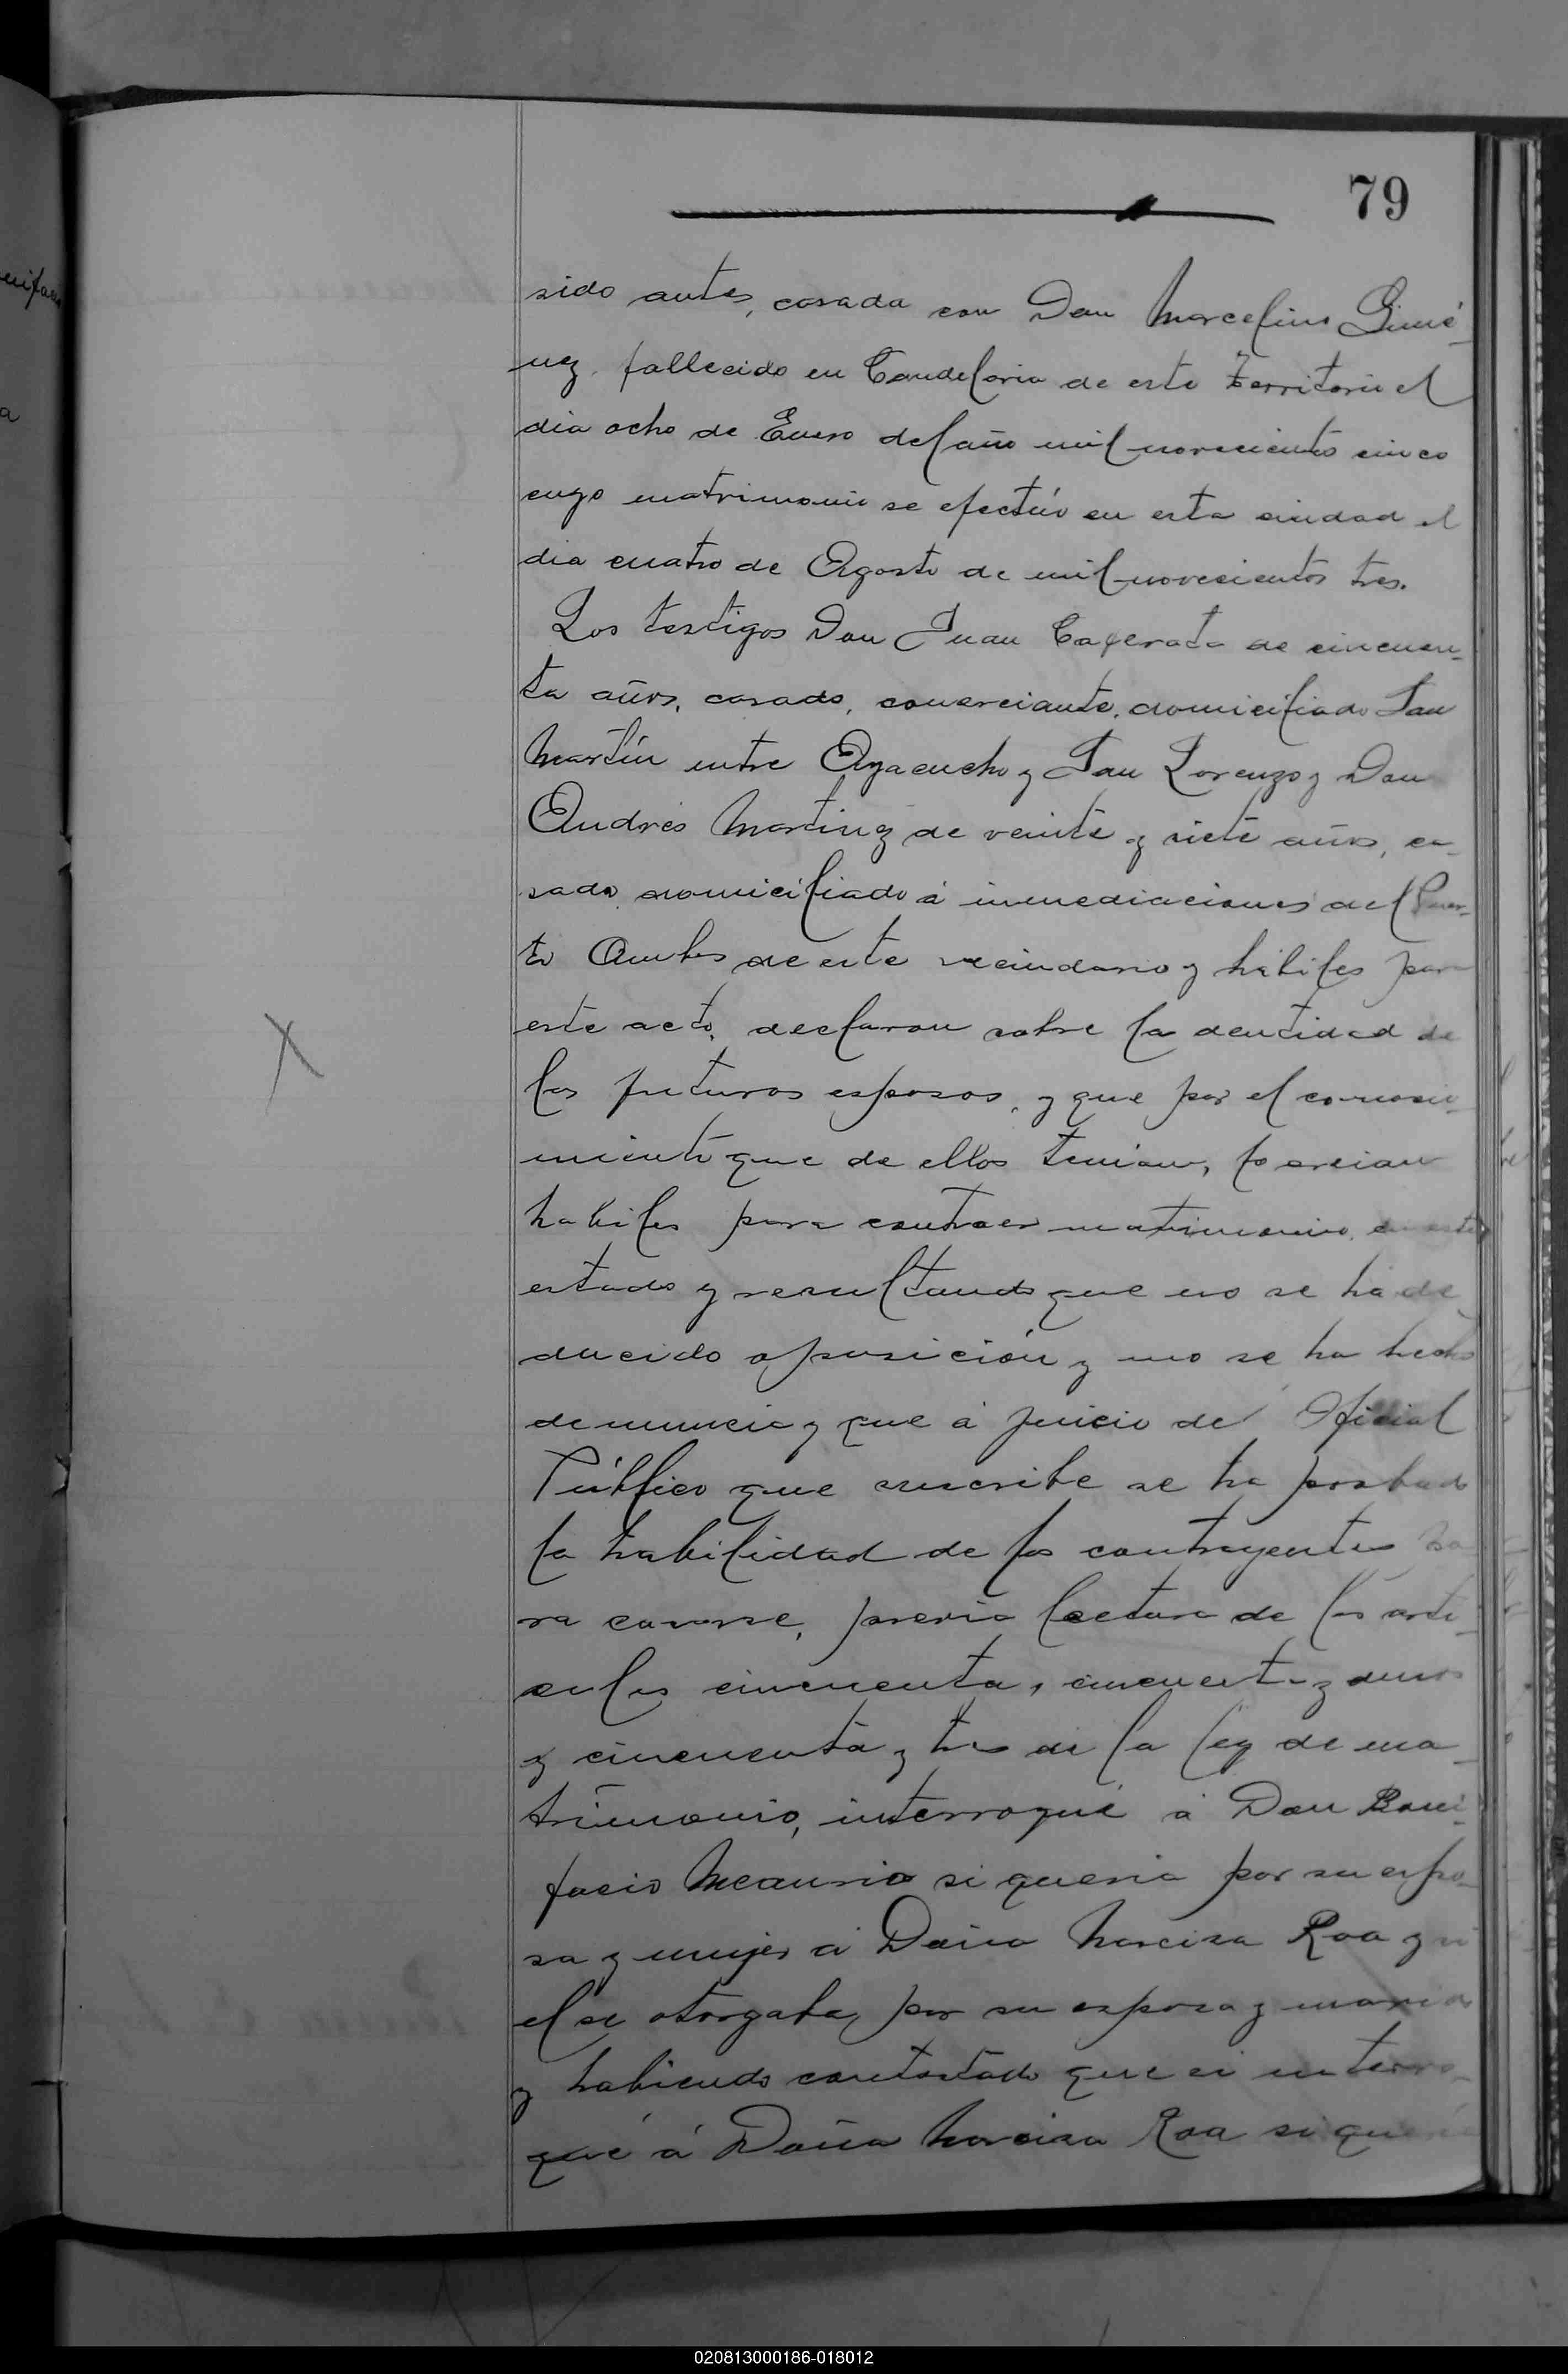 79
sido antes, casada con Don Marcelino Gimé-
nez, fallecido en Candelaria de este territorio el
dia ocho de Enero del año mil novecientos cinco
cuyo matrimonio se efectúo en esta ciudad el
dia cuatro de Agosto de mil novecientos tres.
Los testigos Don Juan Caferata de cincuen-
ta años, casado, comerciante, domiciliado San
Martín entre Ayacucho y San Lorenzo y Don
Andrés Martinez de veinte y siete años, ca-
sado domiciliado á inmediaciones del Puer-
to Ambos de este vecindario y hábiles para
este acto, declaran sobre la dentidad de
los futuros esposos, y que por el conosci-
miento que de ellos tenian, lo creian
habiles para contraer matrimonio, en este
estado y resultando que no se ha de
ducido oposición y no se ha hecho
denuncia y que á juicio del Oficial
Público que suscribe se ha probado
la habilidad de los contrayentes pa
ra casarse, previa lectura de los arti-
culos cincuenta, cincuenta y uno
y cincuenta y tres de la ley de ma-
trimonio, interrogué á Don Boni-
facio Meaurio si queria por su espo-
sa y mujer á Doña Narcisa Roa y si
el se otorgaba por su esposo y marido
y habiendo contestado que si interro-
gué á Doña Narcisa Roa si queria
020813000186-018012